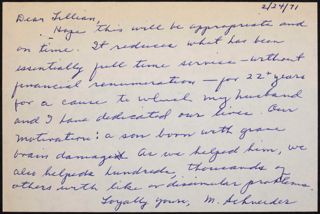 2/24/71
Dear Lillian,
Hope this will be appropriate and
on time. It reduces what has been
essentially full time service - without
financial remuneration - for 22+ years
for a cause to which my husband
and I have dedicated our lives. Our
motivation: a son born with grave
brain damage. As we helped him, we
also helped hundreds, thousands of
others with like or dissimilar problems.
Loyally yours, M. Schneider